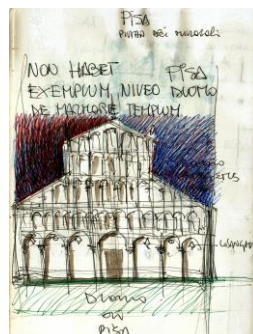 PISA
PIAZZA DEI MIRACOLI
NON HABET
EXEMPLUM, NIVEO
DE MARMORE TEMPLUM
PISA
DUOMO
DUOMO
PISA